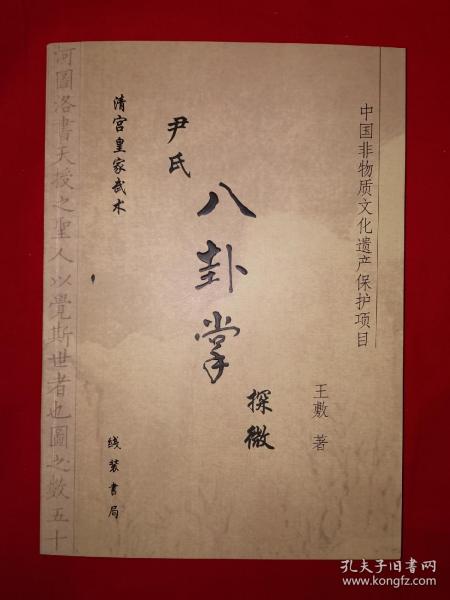 中国非物质文化遗产保护项目
王敷 著
尹氏
八卦掌
探微
清宫皇家武术
线装书局
河圖洛書天授之聖人以覺斯世者也圖之數五十
孔夫子旧书网
www.kongfz.com